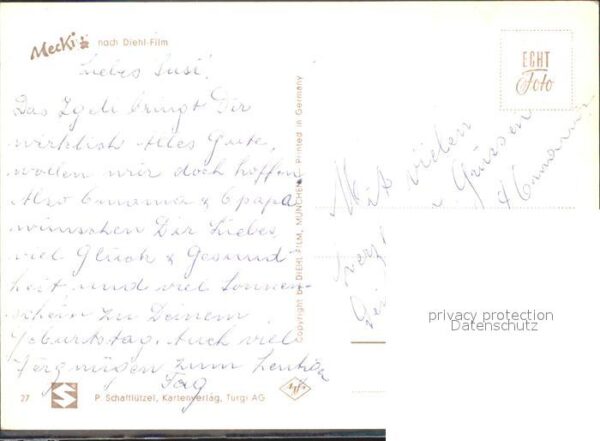 Mecki nach Diehl-Film
Liebes Susi!
Das Igeli bringt Dir
wirklich Alles Gute,
wollen wir doch hoffen
Also Omama & Opapa
wünschen Dir Liebes
viel Glück & Gesund
heit und viel Sonnen-
schein zu Deinem
Geburtstag. Auch viel
Vergnügen zum heutigen
Tag
27 P. Schafflützel, Kartenverlag, Turgi AG
Copyright by DIEHL FILM, MÜNCHEN Printed in Germany
Agfa
ECHT
Foto
Mit vielen
Grüssen
Omama
privacy protection
Datenschutz